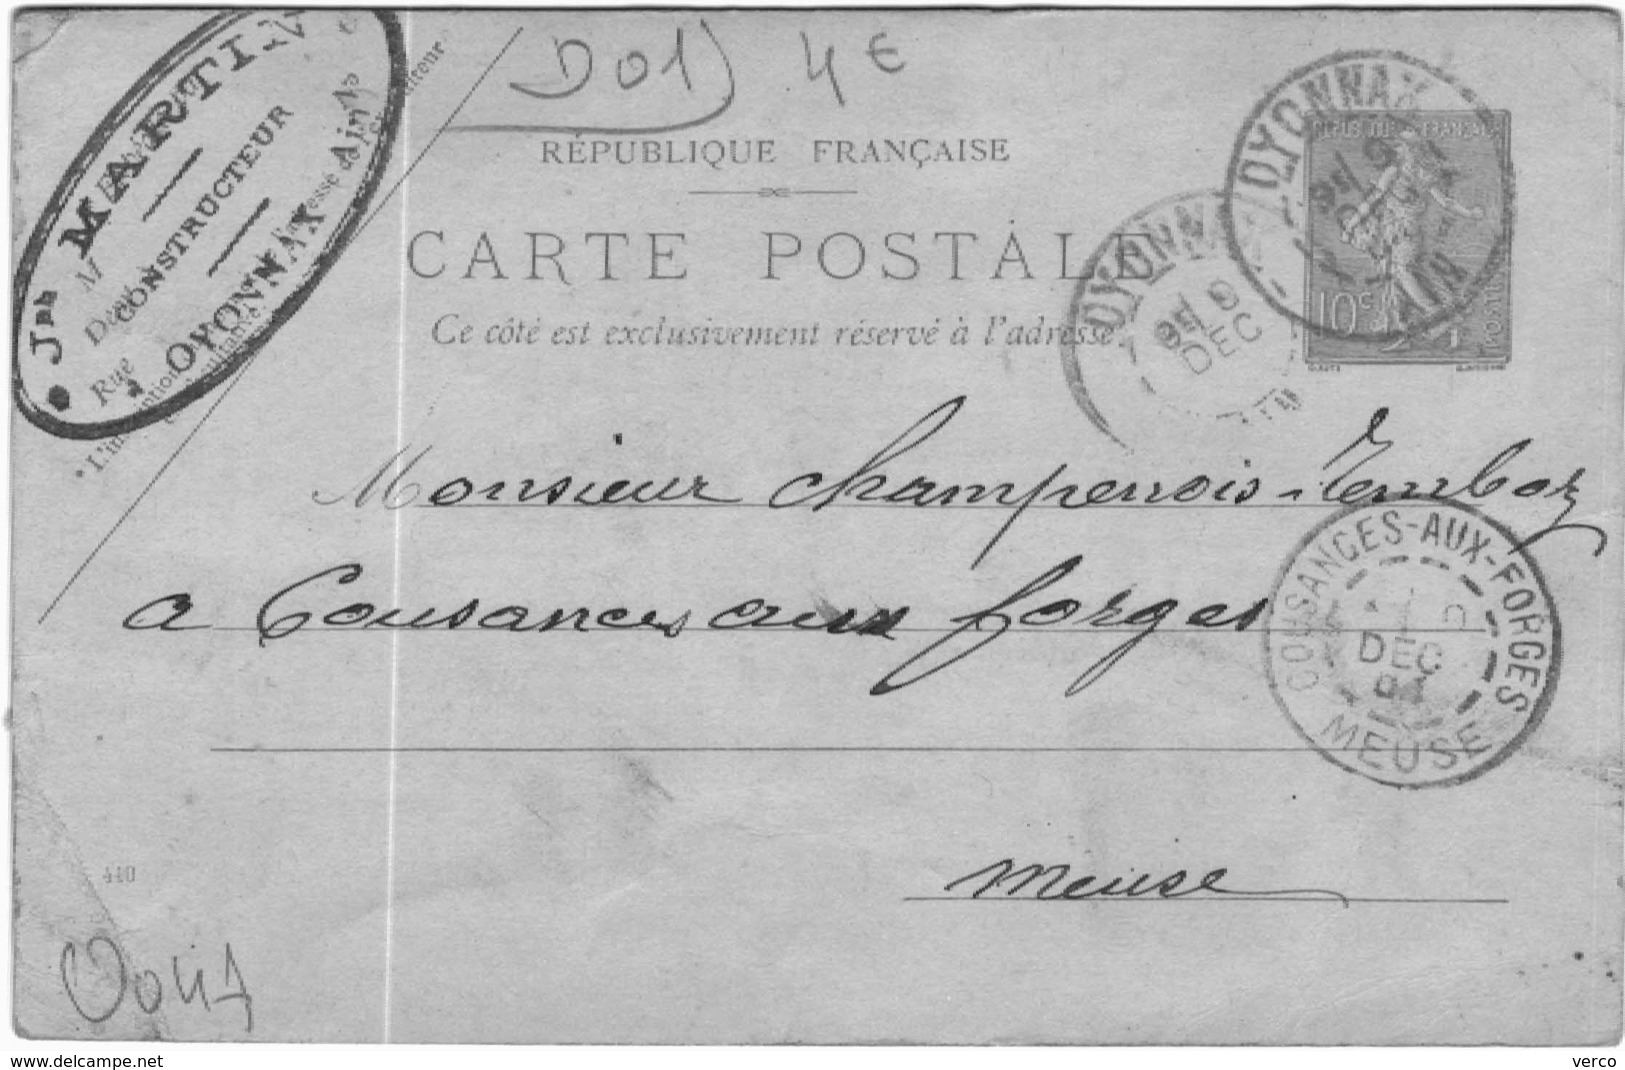 D01J 4€
RÉPUBLIQUE FRANÇAISE
CARTE POSTALE
Ce côté est exclusivement réservé à l'adresse.
Jph MARTIN
CONSTRUCTEUR
OYONNAX Ain
M
Rue
OYONNAX
9
DEC
AIN
OYONNAX
AIN
REPUBLIQUE FRANÇAISE
10c
POSTES
Monsieur Champenois-Remboz
a Cousances aux forges
COUSANCES-AUX-FORGES
DEC
MEUSE
Meuse
440
www.delcampe.net
verco